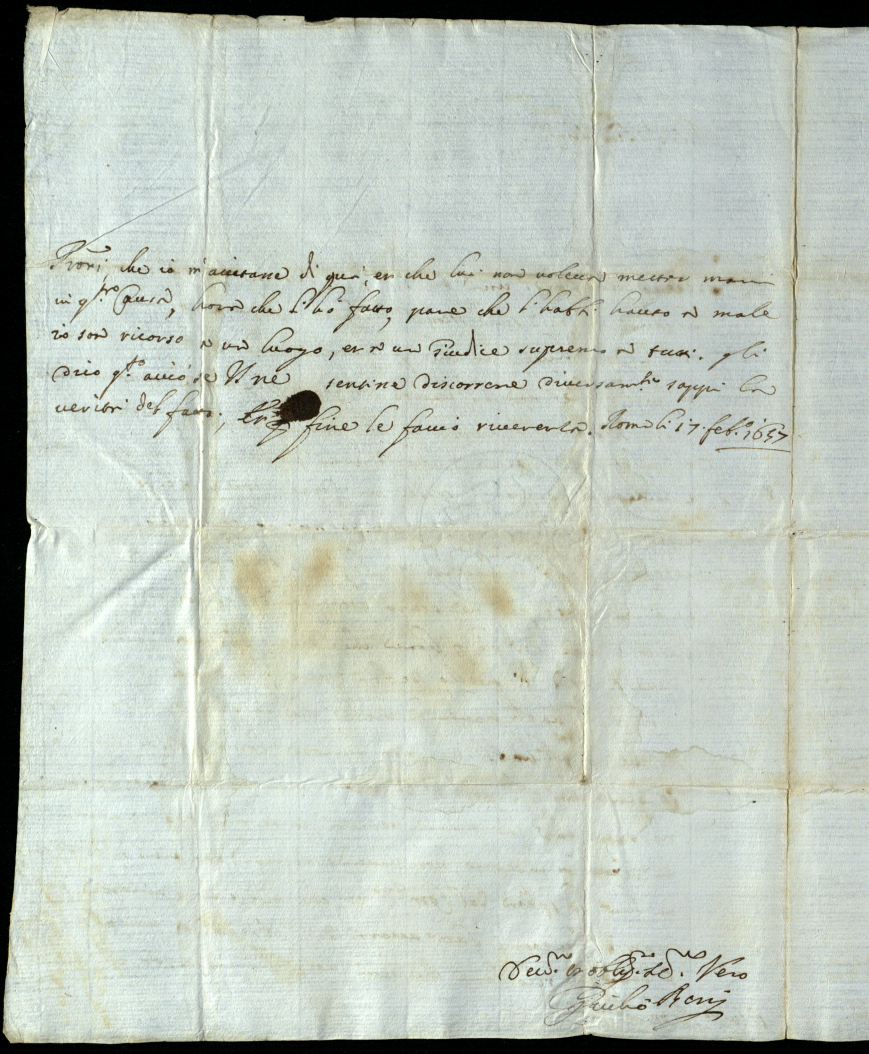 che io m'aiutasse di qua, et che lui non voleva metter mani
in q.sta Causa, hora che l'hò fatto, pare che l'habbi hauto à male
io son ricorso à un luogo, et à un Giudice supremo à tutti. gli
dico q.to acciò se V.S. ne sentisse discorrere diversam.te sappi la
verità del fatto, fine le faccio riverenza. Roma li 17. feb.o 1657
Vero
Giulio